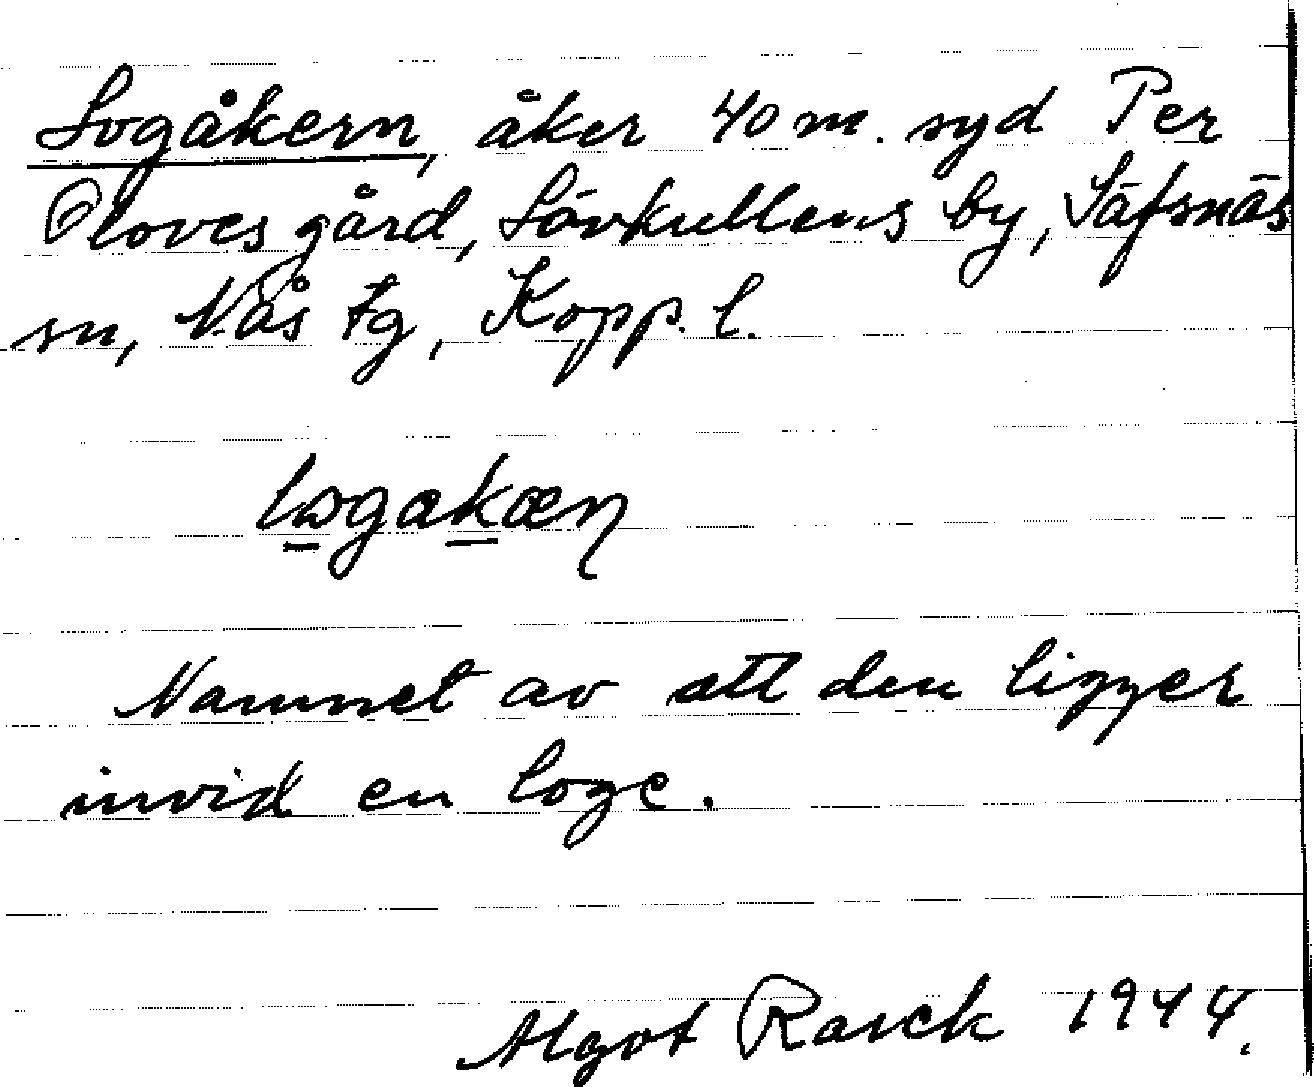 Logåkern, åker 40 m. syd Per
Oloves gård, Lövkullens by, Säfsnäs
sn, Nås tg, Kopp. l.
Namnet av att den ligger
invid en loge.
Algot Rasck 1944.